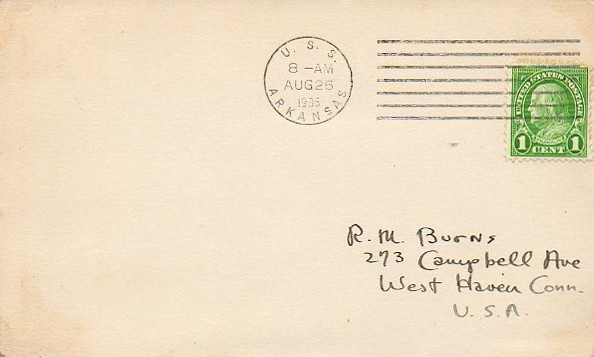 U. S. S.
8 -AM
AUG 26
1936
ARKANSAS
UNITED STATES POSTAGE
FRANKLIN
1 CENT 1
R. M. Burns
273 Campbell Ave
West Haven Conn.
U. S. A.